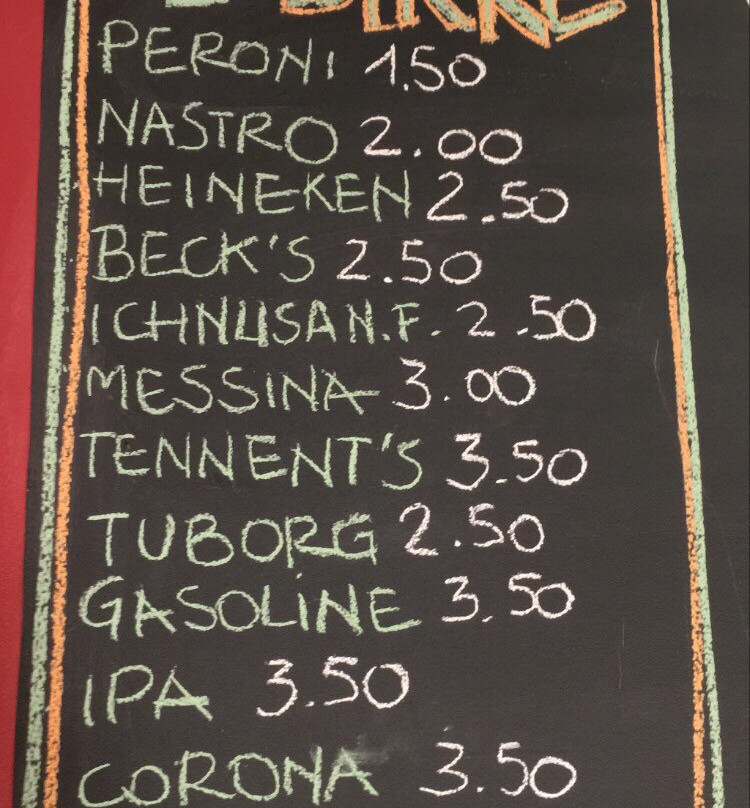 BIRRE
PERONI 1.50
NASTRO 2.00
HEINEKEN 2.50
BECK'S 2.50
ICHNUSA N.F. 2.50
MESSINA 3.00
TENNENT'S 3.50
TUBORG 2.50
GASOLINE 3.50
IPA 3.50
CORONA 3.50